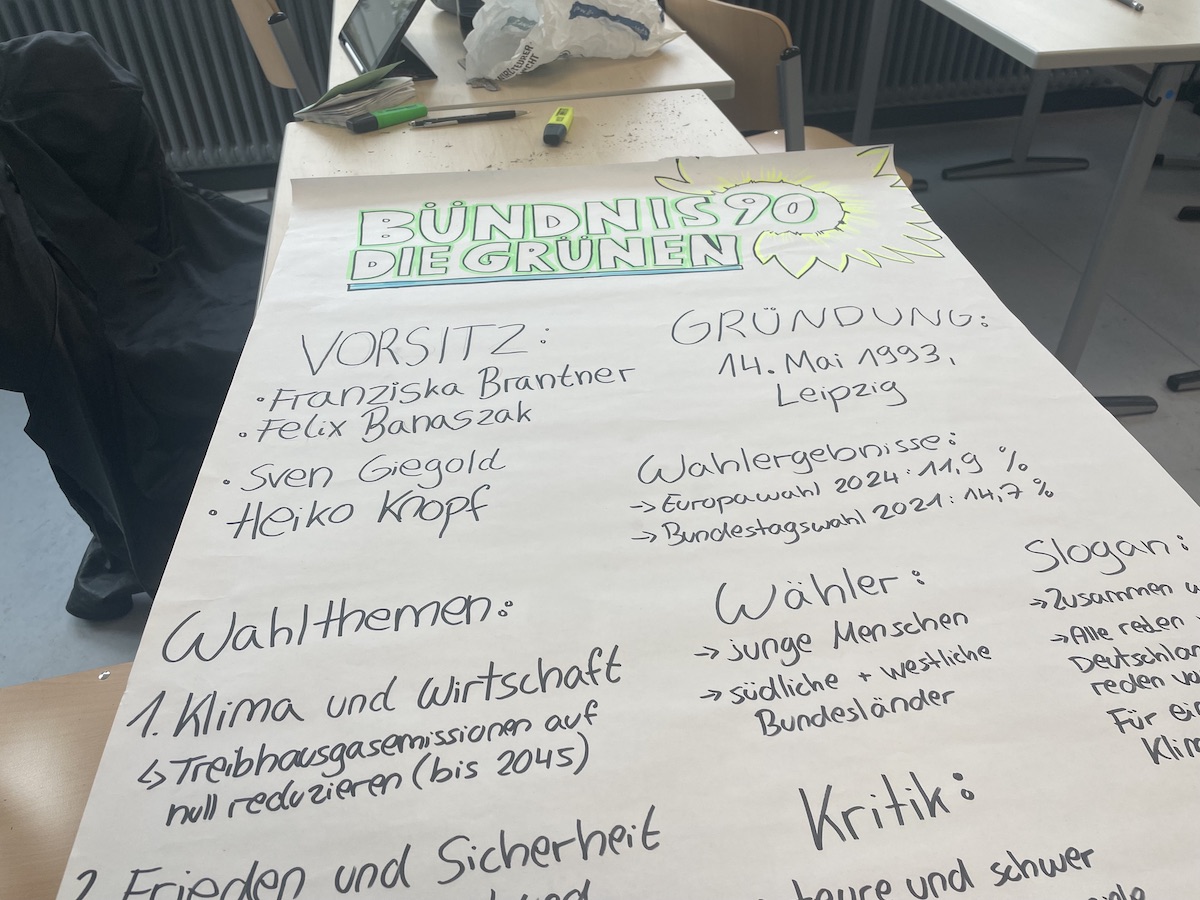 BÜNDNIS 90
DIE GRÜNEN
VORSITZ:
• Franziska Brantner
• Felix Banaszak
• Sven Giegold
• Heiko Knopf
GRÜNDUNG:
14. Mai 1993,
Leipzig
Wahlergebnisse:
→ Europawahl 2024: 11,9 %
→ Bundestagswahl 2021: 14,7 %
Wahlthemen:
1. Klima und Wirtschaft
↳ Treibhausgasemissionen auf
null reduzieren (bis 2045)
2. Frieden und Sicherheit
Wähler:
→ junge Menschen
→ südliche + westliche
Bundesländer
Slogan:
→ Zusammen
→ Alle reden
Deutschlan
reden
Für
Klim
Kritik:
teure und schwer